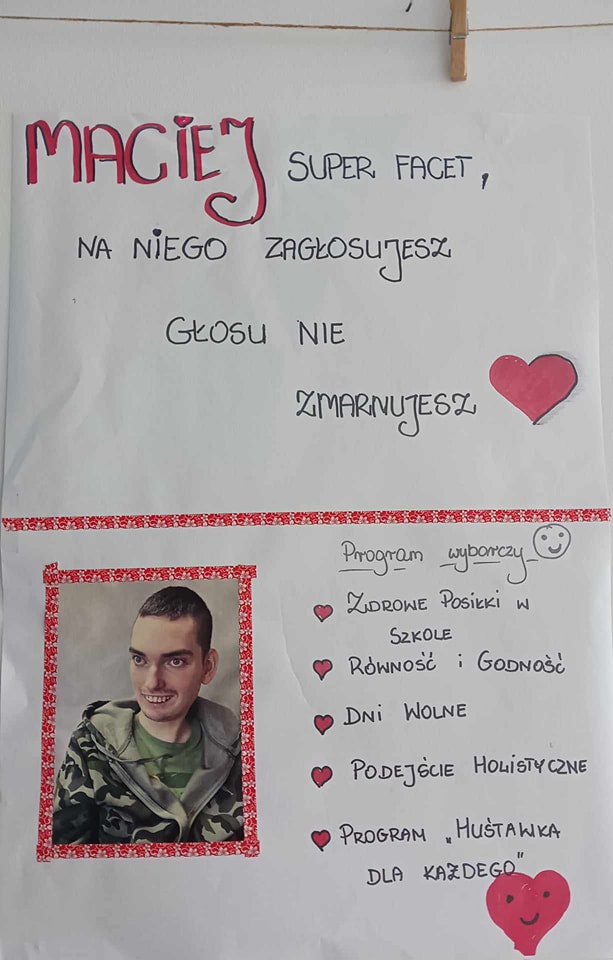 MACIEJ SUPER FACET,
NA NIEGO ZAGŁOSUJESZ
GŁOSU NIE
ZMARNUJESZ
Program wyborczy
ZDROWE POSIŁKI W
SZKOLE
RÓWNOŚĆ i GODNOŚĆ
DNI WOLNE
PODEJŚCIE HOLISTYCZNE
PROGRAM „HUŚTAWKA
DLA KAŻDEGO”